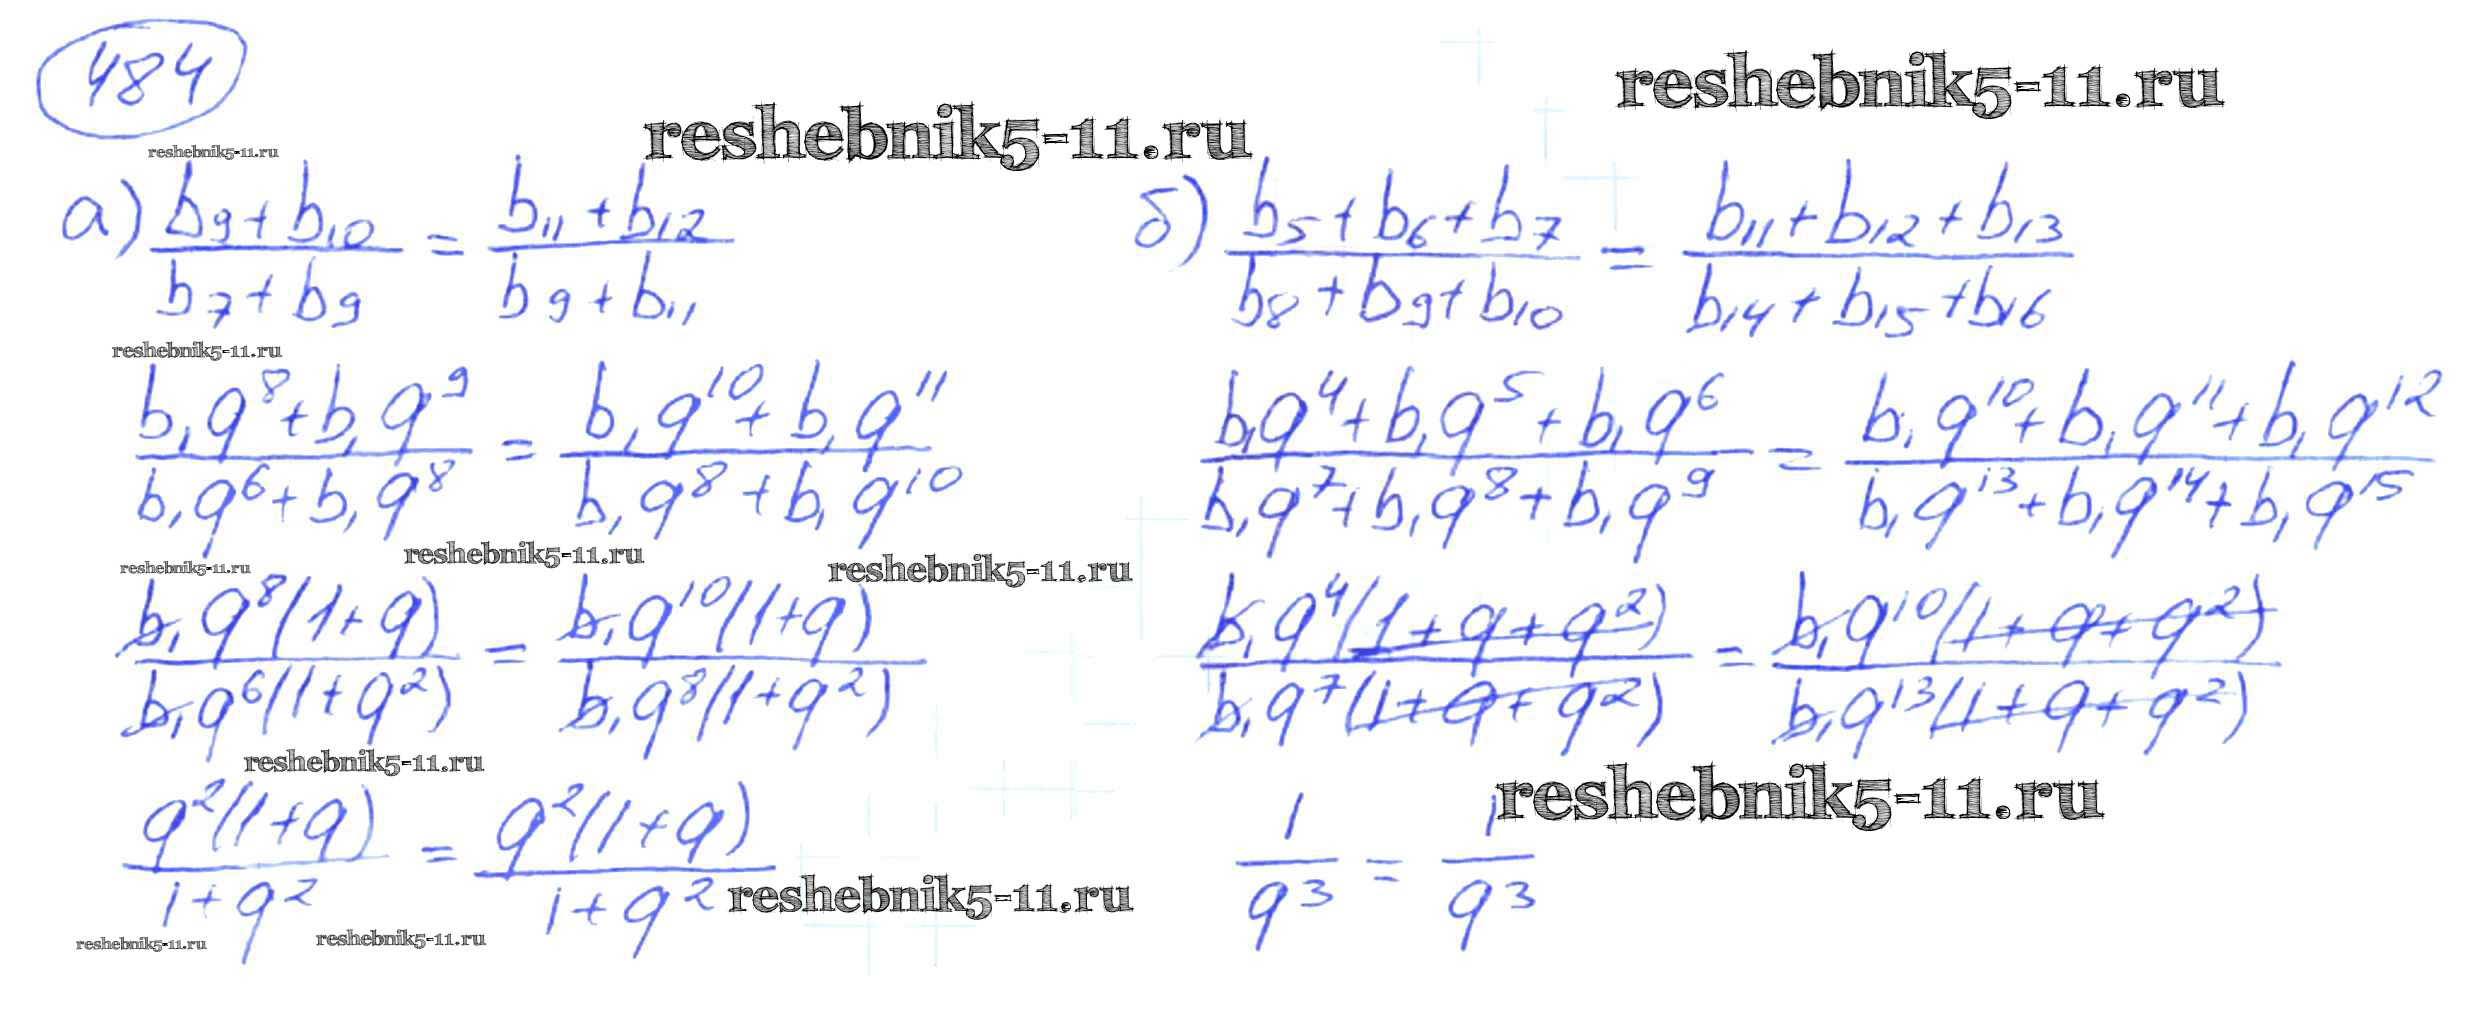 484
reshebnik5-11.ru
reshebnik5-11.ru
reshebnik5-11.ru
а) (b₉+b₁₀)/(b₇+b₉) = (b₁₁+b₁₂)/(b₉+b₁₁)
reshebnik5-11.ru
(b₁q⁸+b₁q⁹)/(b₁q⁶+b₁q⁸) = (b₁q¹⁰+b₁q¹¹)/(b₁q⁸+b₁q¹⁰)
reshebnik5-11.ru
reshebnik5-11.ru
reshebnik5-11.ru
b₁q⁸(1+q)/b₁q⁶(1+q²) = b₁q¹⁰(1+q)/b₁q⁸(1+q²)
reshebnik5-11.ru
q²(1+q)/(1+q²) = q²(1+q)/(1+q²)
reshebnik5-11.ru
reshebnik5-11.ru
reshebnik5-11.ru
б) (b₅+b₆+b₇)/(b₈+b₉+b₁₀) = (b₁₁+b₁₂+b₁₃)/(b₁₄+b₁₅+b₁₆)
(b₁q⁴+b₁q⁵+b₁q⁶)/(b₁q⁷+b₁q⁸+b₁q⁹) = (b₁q¹⁰+b₁q¹¹+b₁q¹²)/(b₁q¹³+b₁q¹⁴+b₁q¹⁵)
b₁q⁴(1+q+q²)/b₁q⁷(1+q+q²) = b₁q¹⁰(1+q+q²)/b₁q¹³(1+q+q²)
reshebnik5-11.ru
1/q³ = 1/q³